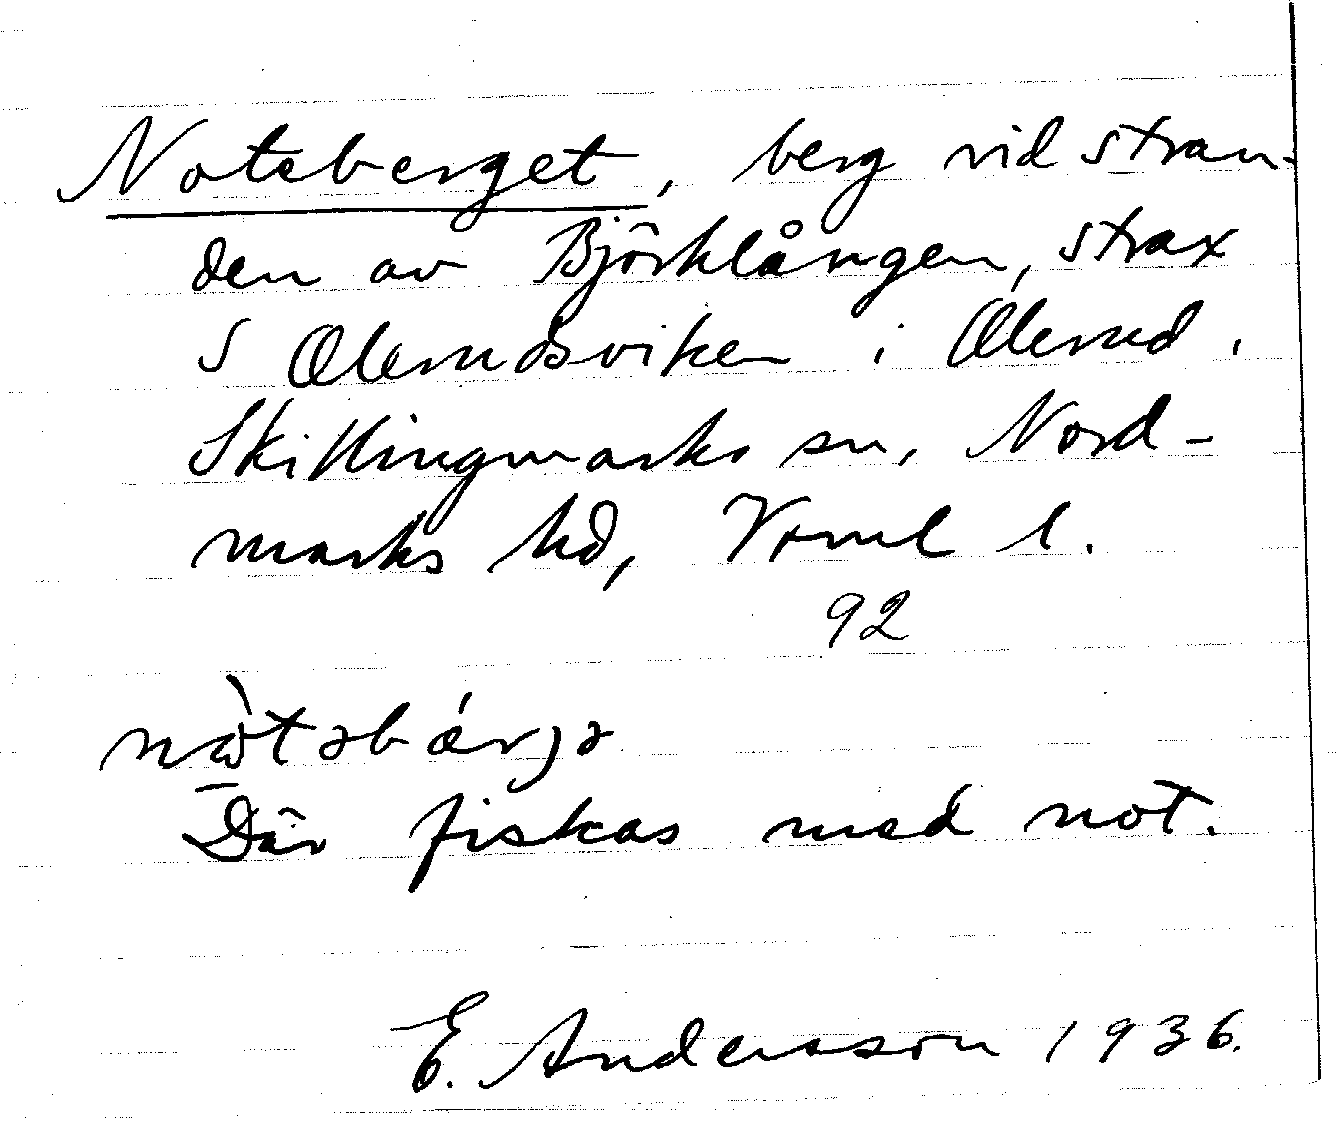 Noteberget, berg vid stran-
den av Björklången, strax
S Olerudsviken i Olerud,
Skillingmarks sn, Nord-
marks hd, Vrml l.
92
Där fiskas med not.
E. Andersson 1936.